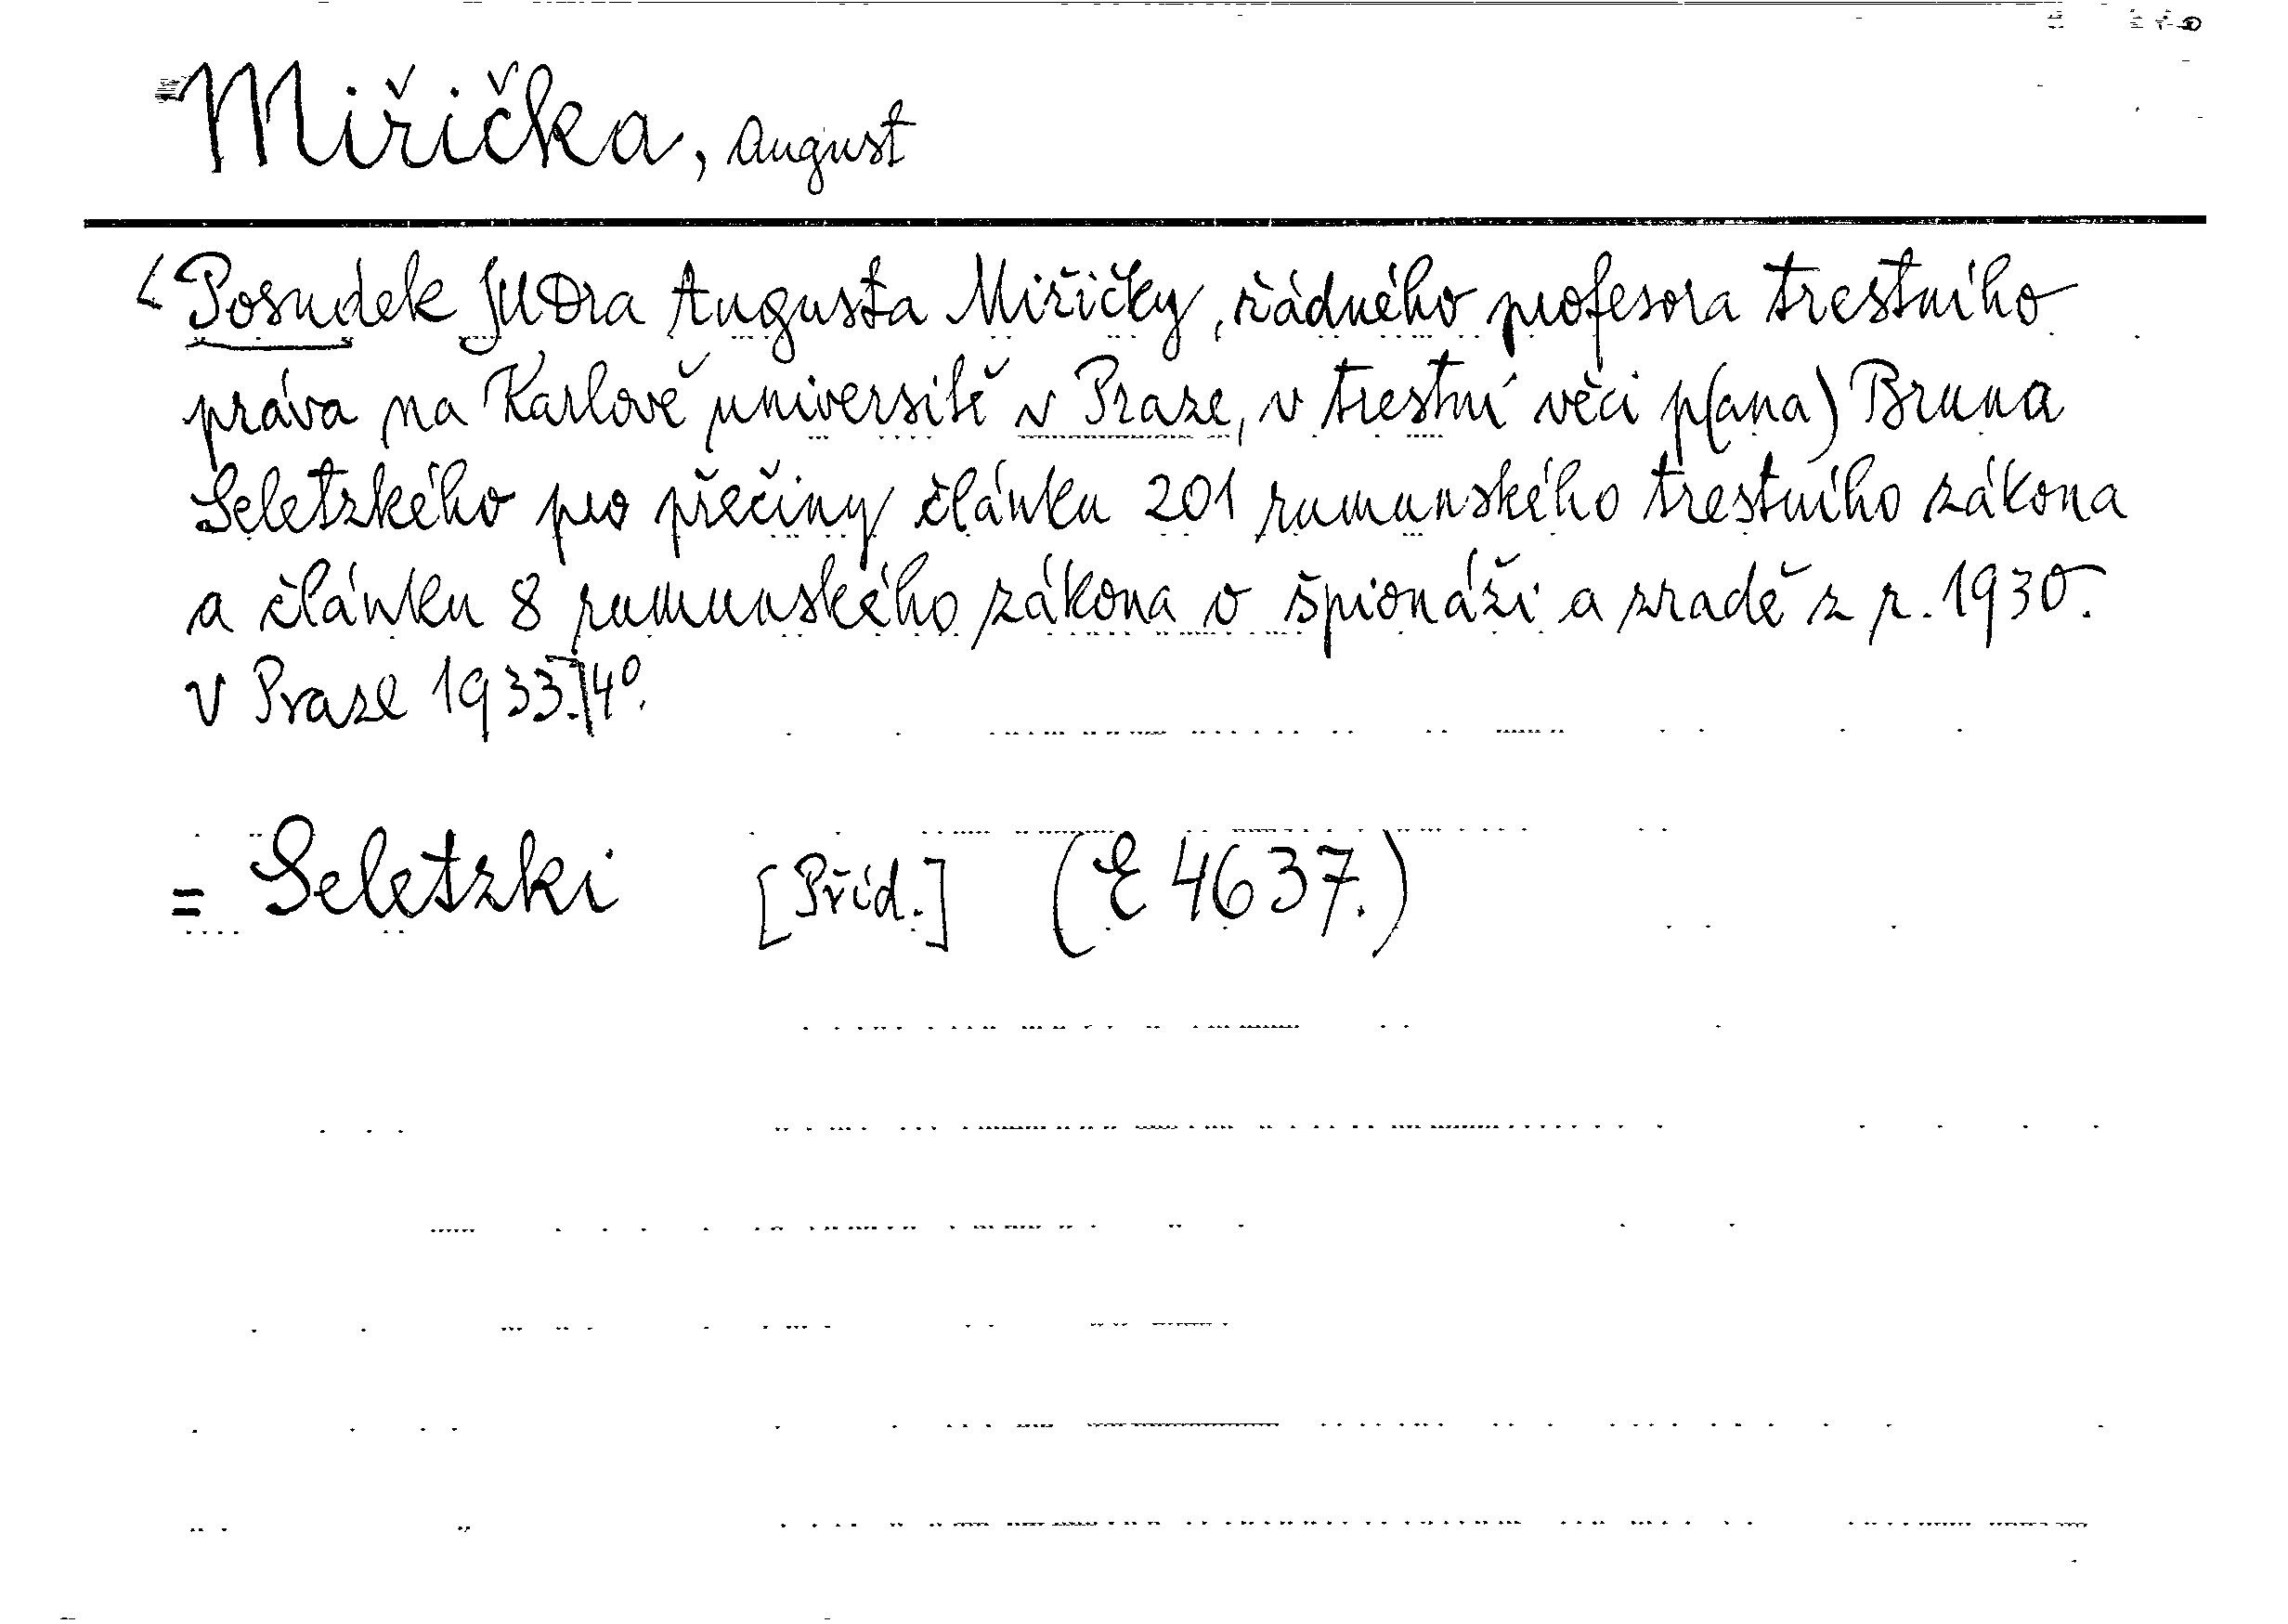 Miřička, August
Posudek JUDra Augusta Miřičky, řádného profesora trestního
práva na Karlově universitě v Praze, v trestní věci p(ana) Bruna
Seletzkého pro přečiny článku 201 rumunského trestního zákona
a článku 8 rumunského zákona o špionáži a zradě z r. 1930.
V Praze 1933. 4°.
= Seletzki [Příd.] (E 4637.)